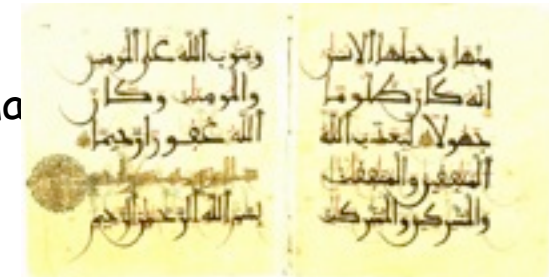 منها وحملها الانسان
انه كان ظلوما
جهولا ليعذب الله
المنفقين والمنفقات
والمشركين والمشركات
ويتوب الله على المومنين
والمومنات وكان
الله غفورا رحيما
بسم الله الرحمن الرحيم